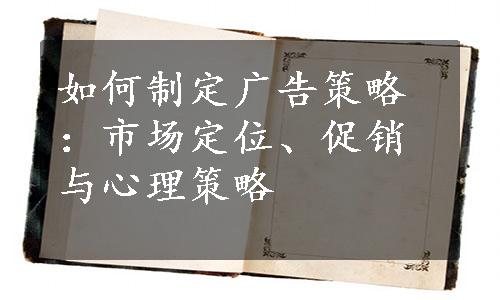 如何制定广告策略
：市场定位、促销
与心理策略